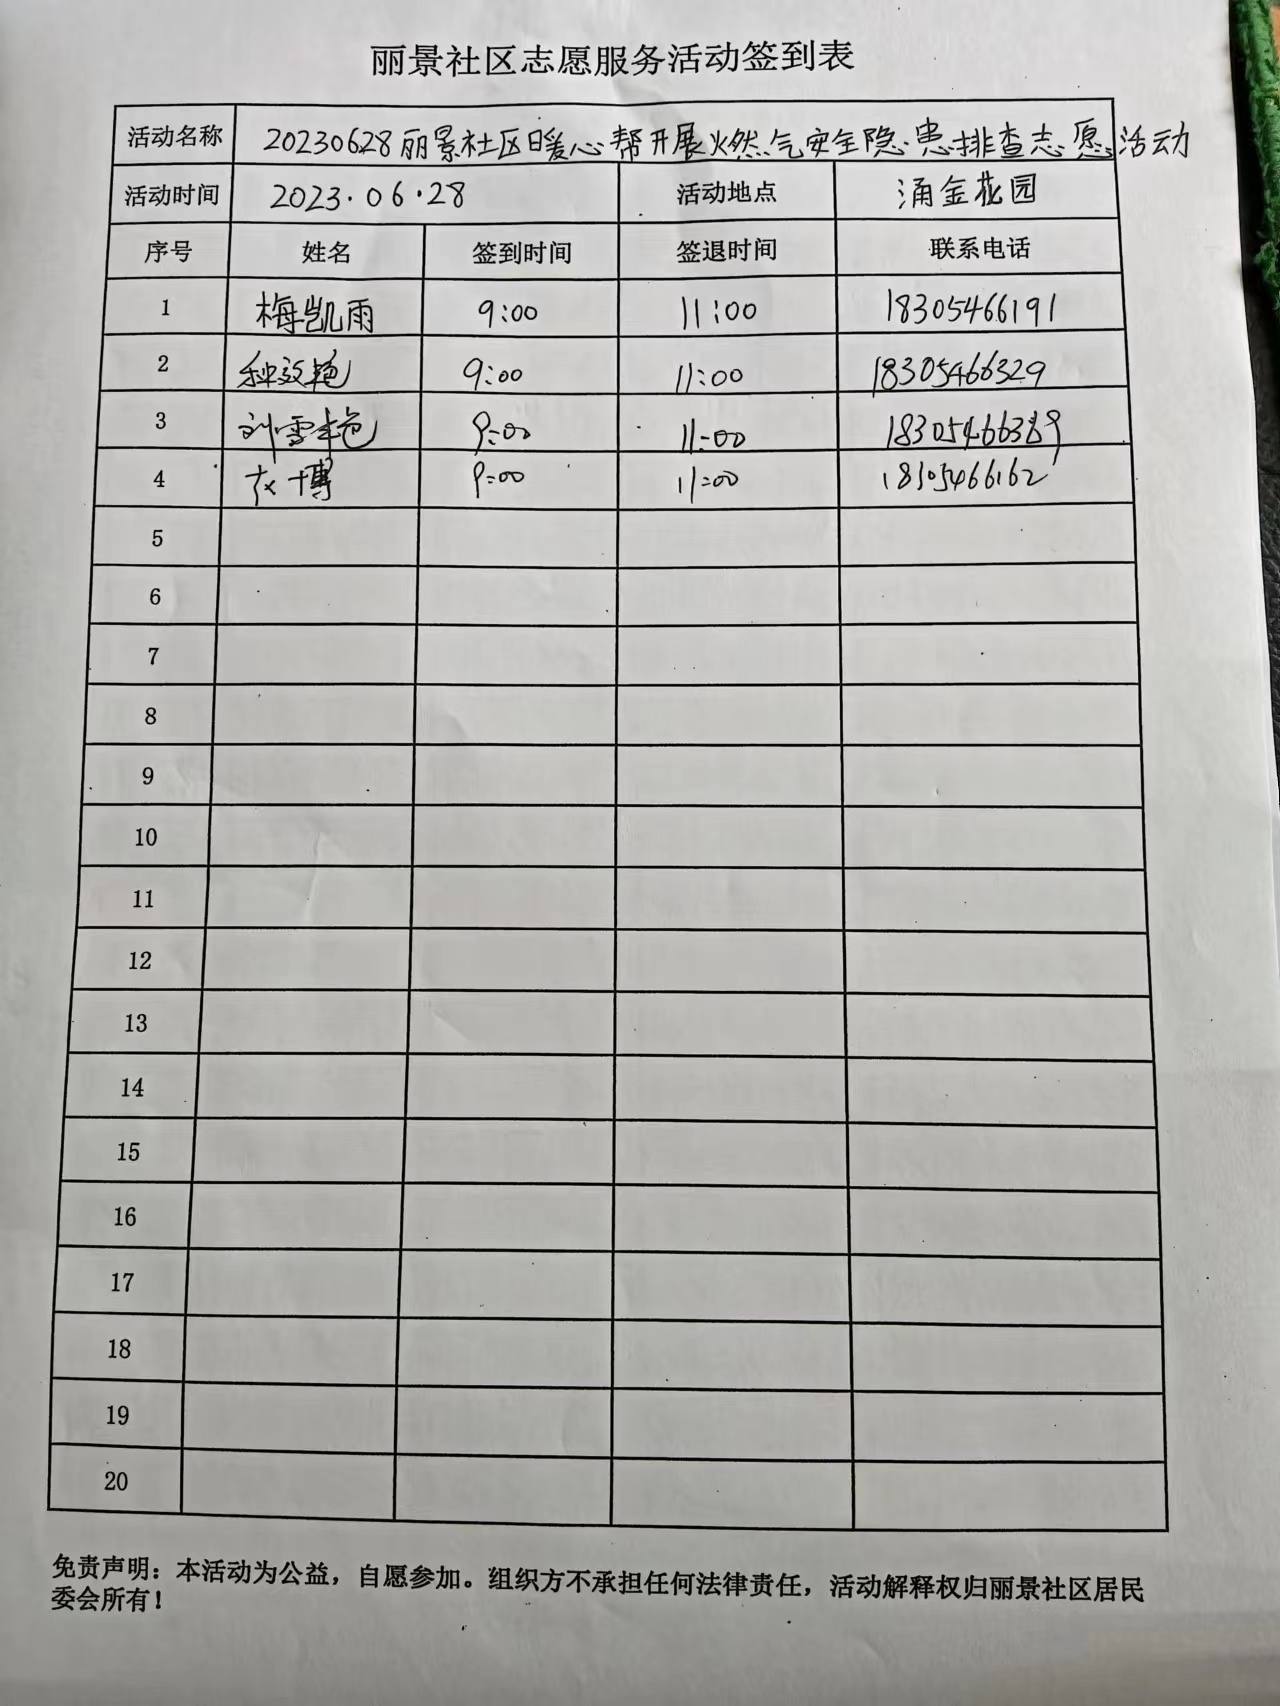 丽景社区志愿服务活动签到表
活动名称 20230628丽景社区暖心帮开展燃气安全隐患排查志愿活动
活动时间 2023.06.28 活动地点 涌金花园
序号 姓名 签到时间 签退时间 联系电话
1 梅凯雨 9:00 11:00 18305466191
2 9:00 11:00 18305466329
3 刘雪艳 9:00 11:00 18305466389
4 赵博 9:00 11:00 18305466162
5
6
7
8
9
10
11
12
13
14
15
16
17
18
19
20
免责声明：本活动为公益，自愿参加。组织方不承担任何法律责任，活动解释权归丽景社区居民
委会所有！